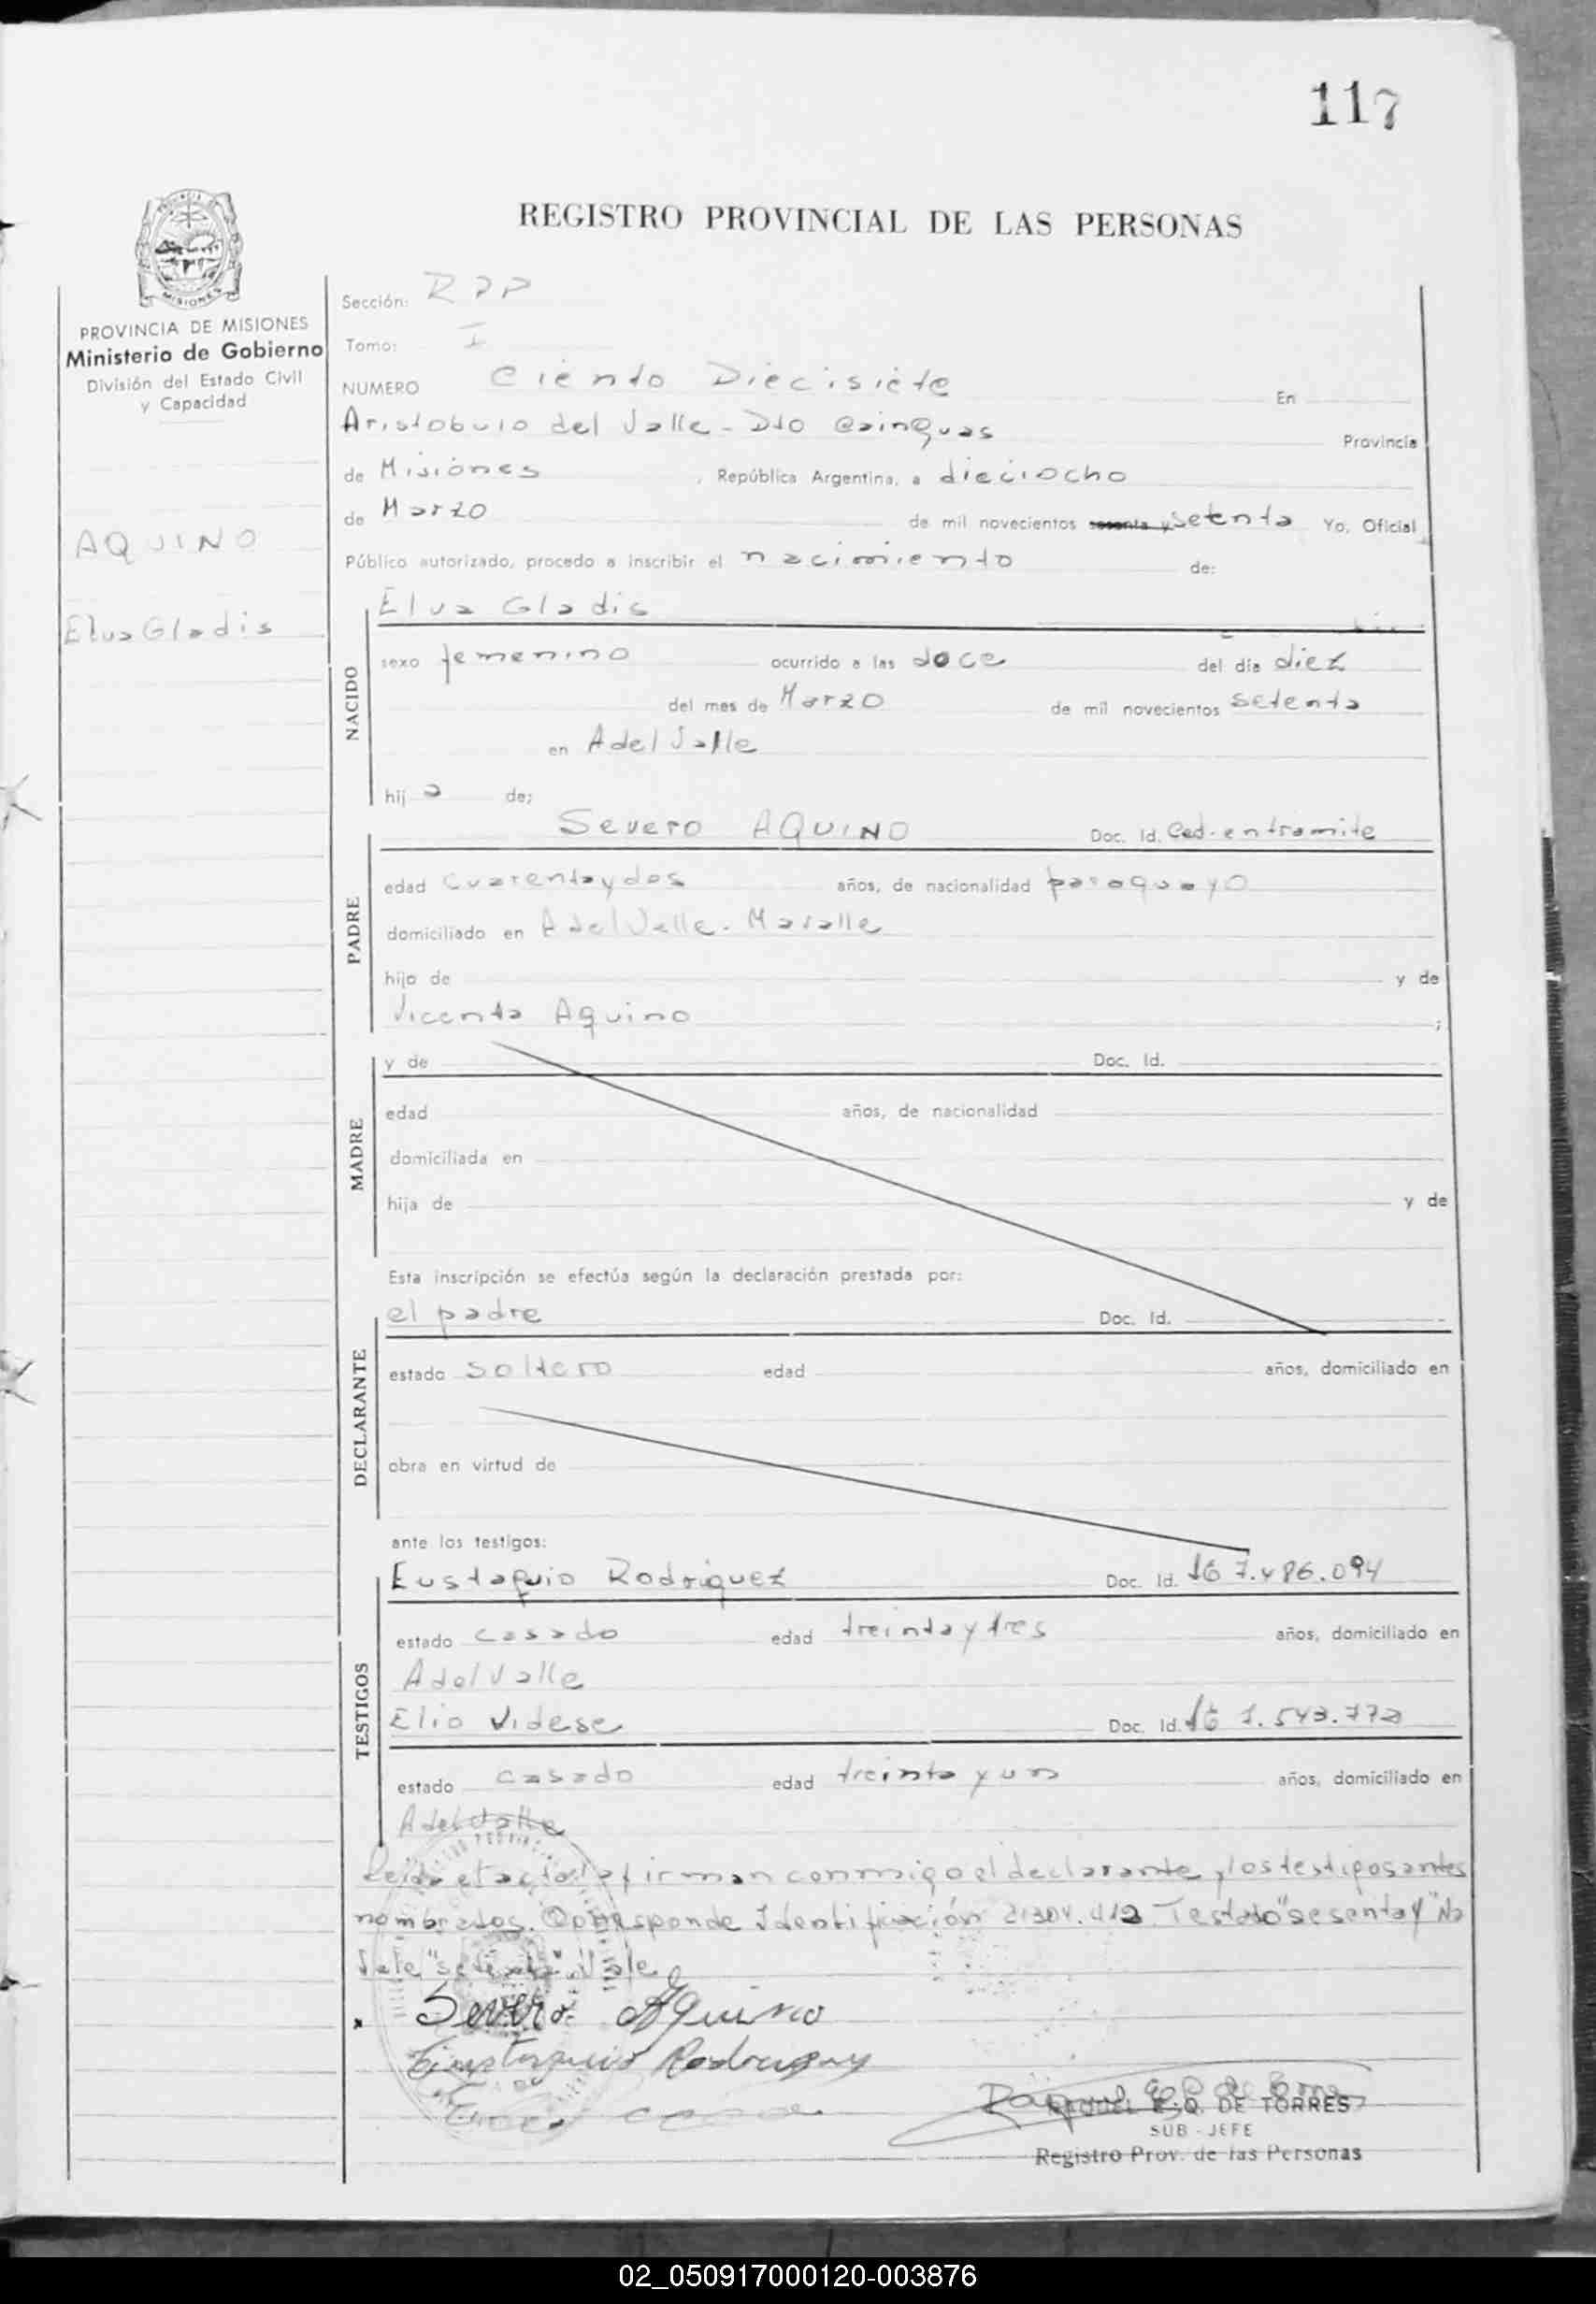 117
REGISTRO PROVINCIAL DE LAS PERSONAS
PROVINCIA DE MISIONES
Ministerio de Gobierno
División del Estado Civil
y Capacidad
AQUINO
Elva Gladis
Sección: RPP
Tomo: I
NUMERO Ciento Diecisiete En
Aristobulo del Valle - Dto Cainguas Provincia
de Misiones, República Argentina, a dieciocho
de Marzo de mil novecientos sesenta y setenta Yo, Oficial
Público autorizado, procedo a inscribir el nacimiento de:
NACIDO
Elva Gladis
sexo femenino ocurrido a las doce del día diez
del mes de Marzo de mil novecientos setenta
en A del Valle
hij a de;
PADRE
Severo AQUINO Doc. Id. Ced. en tramite
edad cuarenta y dos años, de nacionalidad paraguayo
domiciliado en A del Valle.
hijo de y de
Vicenta Aquino ;
MADRE
y de Doc. Id.
edad años, de nacionalidad
domiciliada en
hija de y de
Esta inscripción se efectúa según la declaración prestada por:
DECLARANTE
el padre Doc. Id.
estado soltero edad años, domiciliado en
obra en virtud de
ante los testigos:
TESTIGOS
Eustaquio Rodriguez Doc. Id. 7.486.094
estado casado edad treinta y tres años, domiciliado en
A del Valle
Elio Videse Doc. Id. 7.543.772
estado casado edad treinta y un años, domiciliado en
A del Valle
Leida el acta la firman conmigo el declarante y los testigos antes
nombrados. Corresponde Identificación 21304.412 Testado "sesenta y" No
Vale "setenta" Vale
Severo Aquino
Eustaquio Rodriguez
RAQUEL E. Q. DE TORRES
SUB - JEFE
Registro Prov. de las Personas
02_050917000120-003876